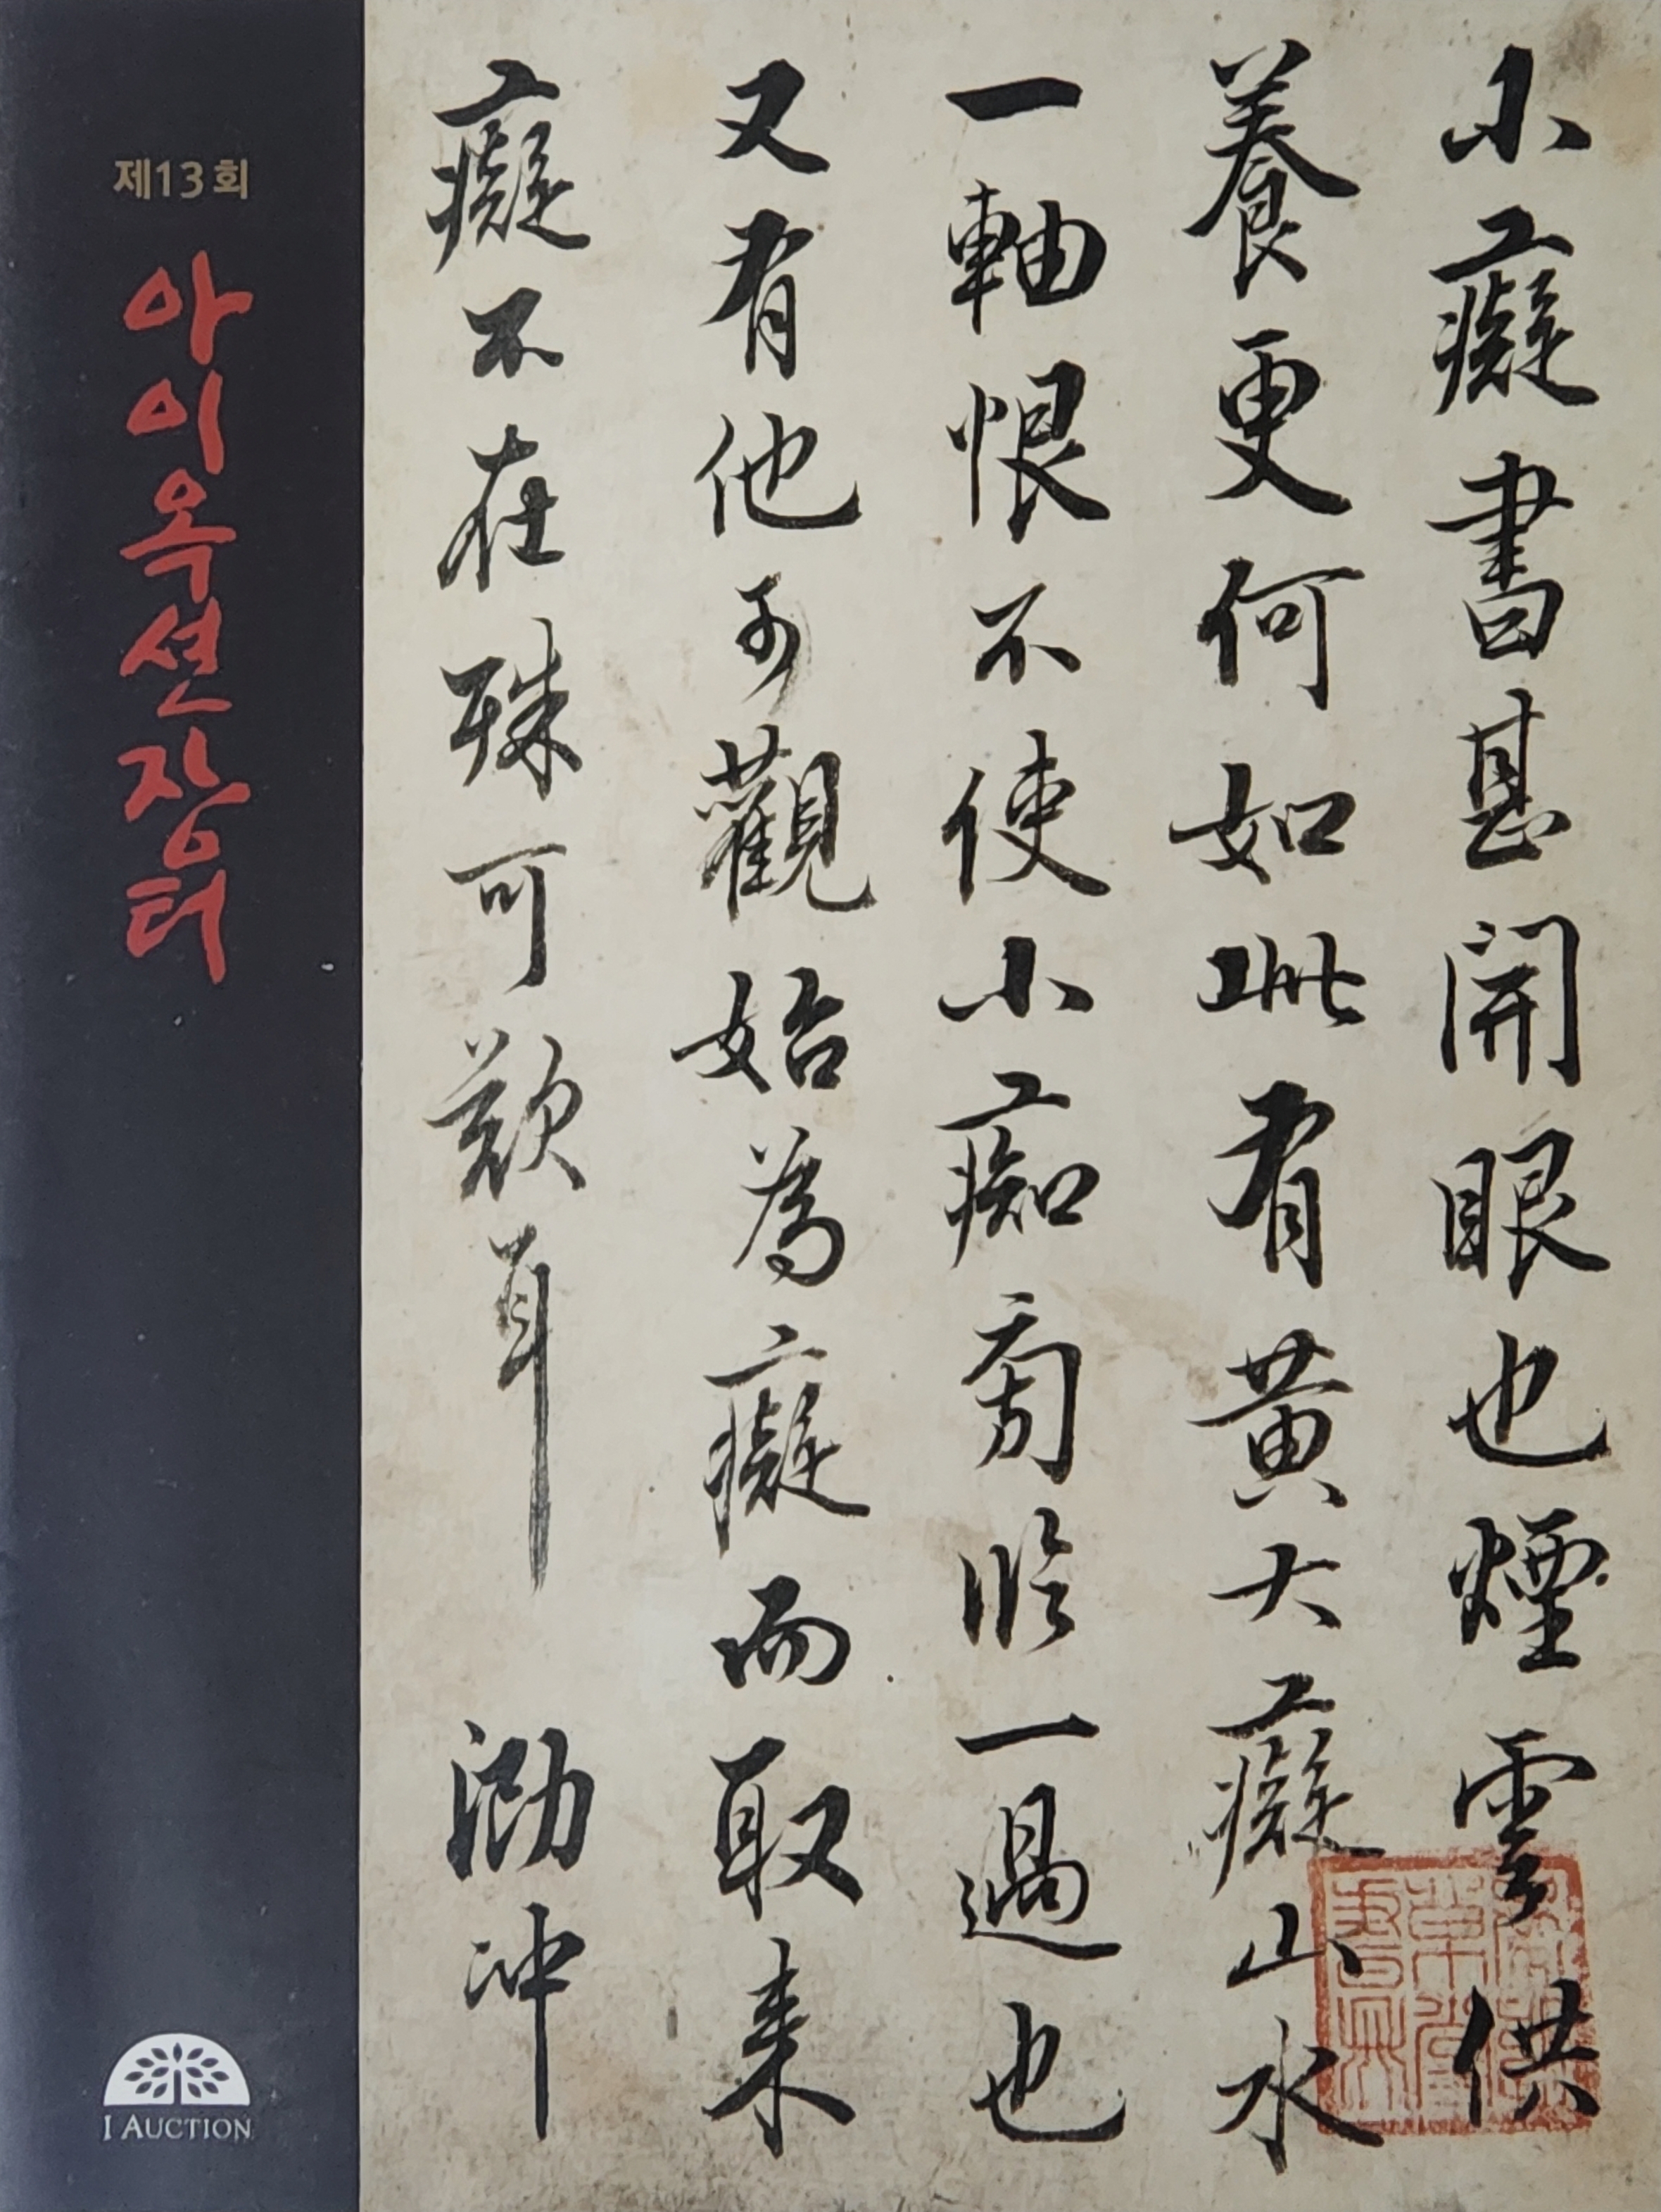 제13회
아이옥션장터
I AUCTION
小癡書甚開眼也煙雲供
養更何如此有黃大癡山水
一軸恨不使小痴臨一過也
又有他可觀始為癡而取來
癡不在殊可歎耳 泐冲